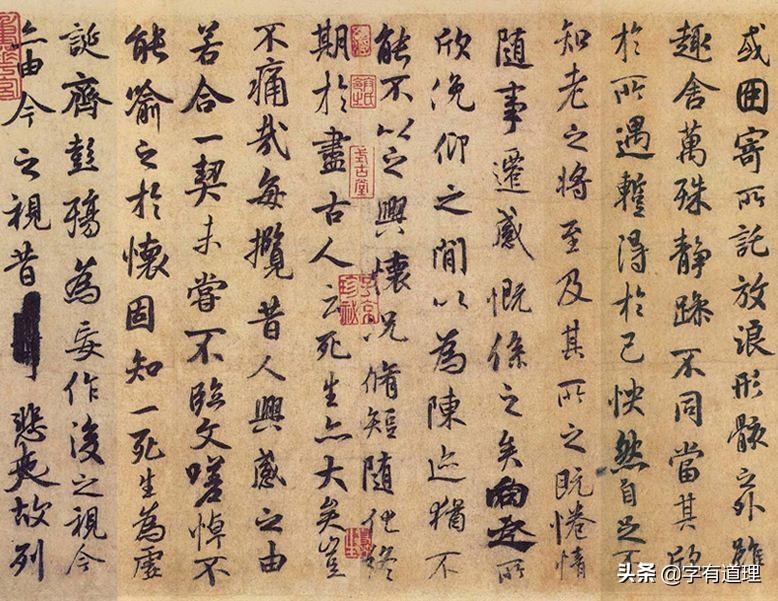 或因寄所託放浪形骸之外雖
趣舍萬殊靜躁不同當其欣
於所遇蹔得於己怏然自足不
知老之將至及其所之既惓情
隨事遷感慨係之矣向之所
欣俛仰之閒以為陳迹猶不
能不以之興懷況脩短隨化終
期於盡古人云死生亦大矣豈
不痛哉每攬昔人興感之由
若合一契未嘗不臨文嗟悼不
能喻之於懷固知一死生為虛
誕齊彭殤為妄作後之視今
亦由今之視昔悲夫故列
式古堂
头条 @字有道理